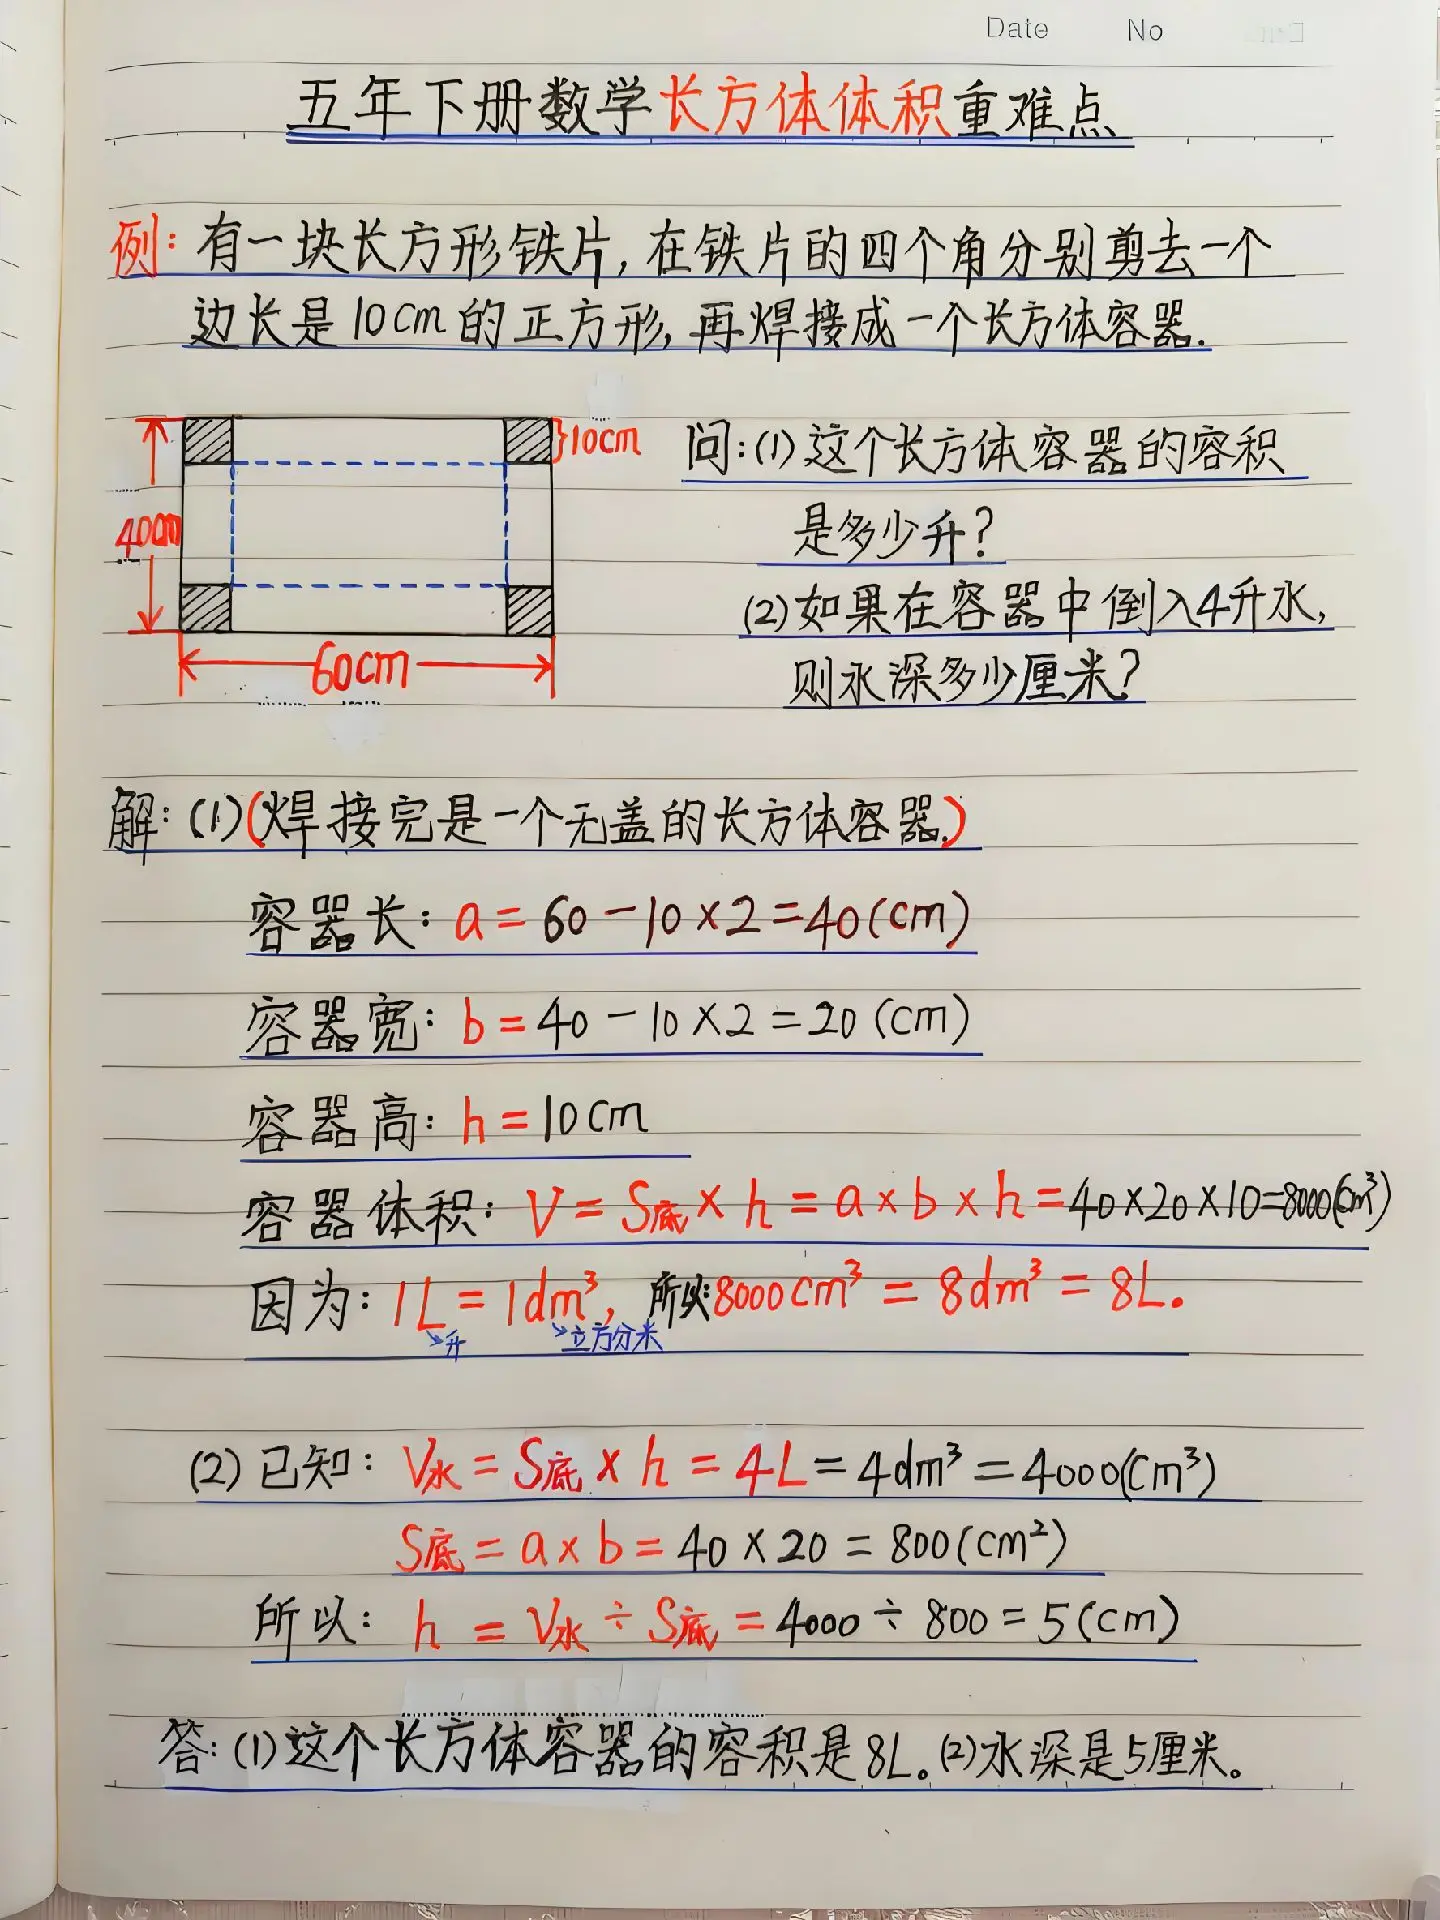 Date No
五年下册数学长方体体积重难点
例：有一块长方形铁片,在铁片的四个角分别剪去一个
边长是10cm的正方形,再焊接成一个长方体容器.
10cm
40cm
60cm
问:(1)这个长方体容器的容积
是多少升?
(2)如果在容器中倒入4升水,
则水深多少厘米?
解:(1)(焊接完是一个无盖的长方体容器.)
容器长: a=60-10×2=40(cm)
容器宽: b=40-10×2=20(cm)
容器高: h=10cm
容器体积: V=S底×h=a×b×h=40×20×10=8000(cm³)
因为: 1L=1dm³, 所以:8000cm³=8dm³=8L.
升 立方分米
(2)已知: V水=S底×h=4L=4dm³=4000(cm³)
S底=a×b=40×20=800(cm²)
所以: h=V水÷S底=4000÷800=5(cm)
答:(1)这个长方体容器的容积是8L。(2)水深是5厘米。